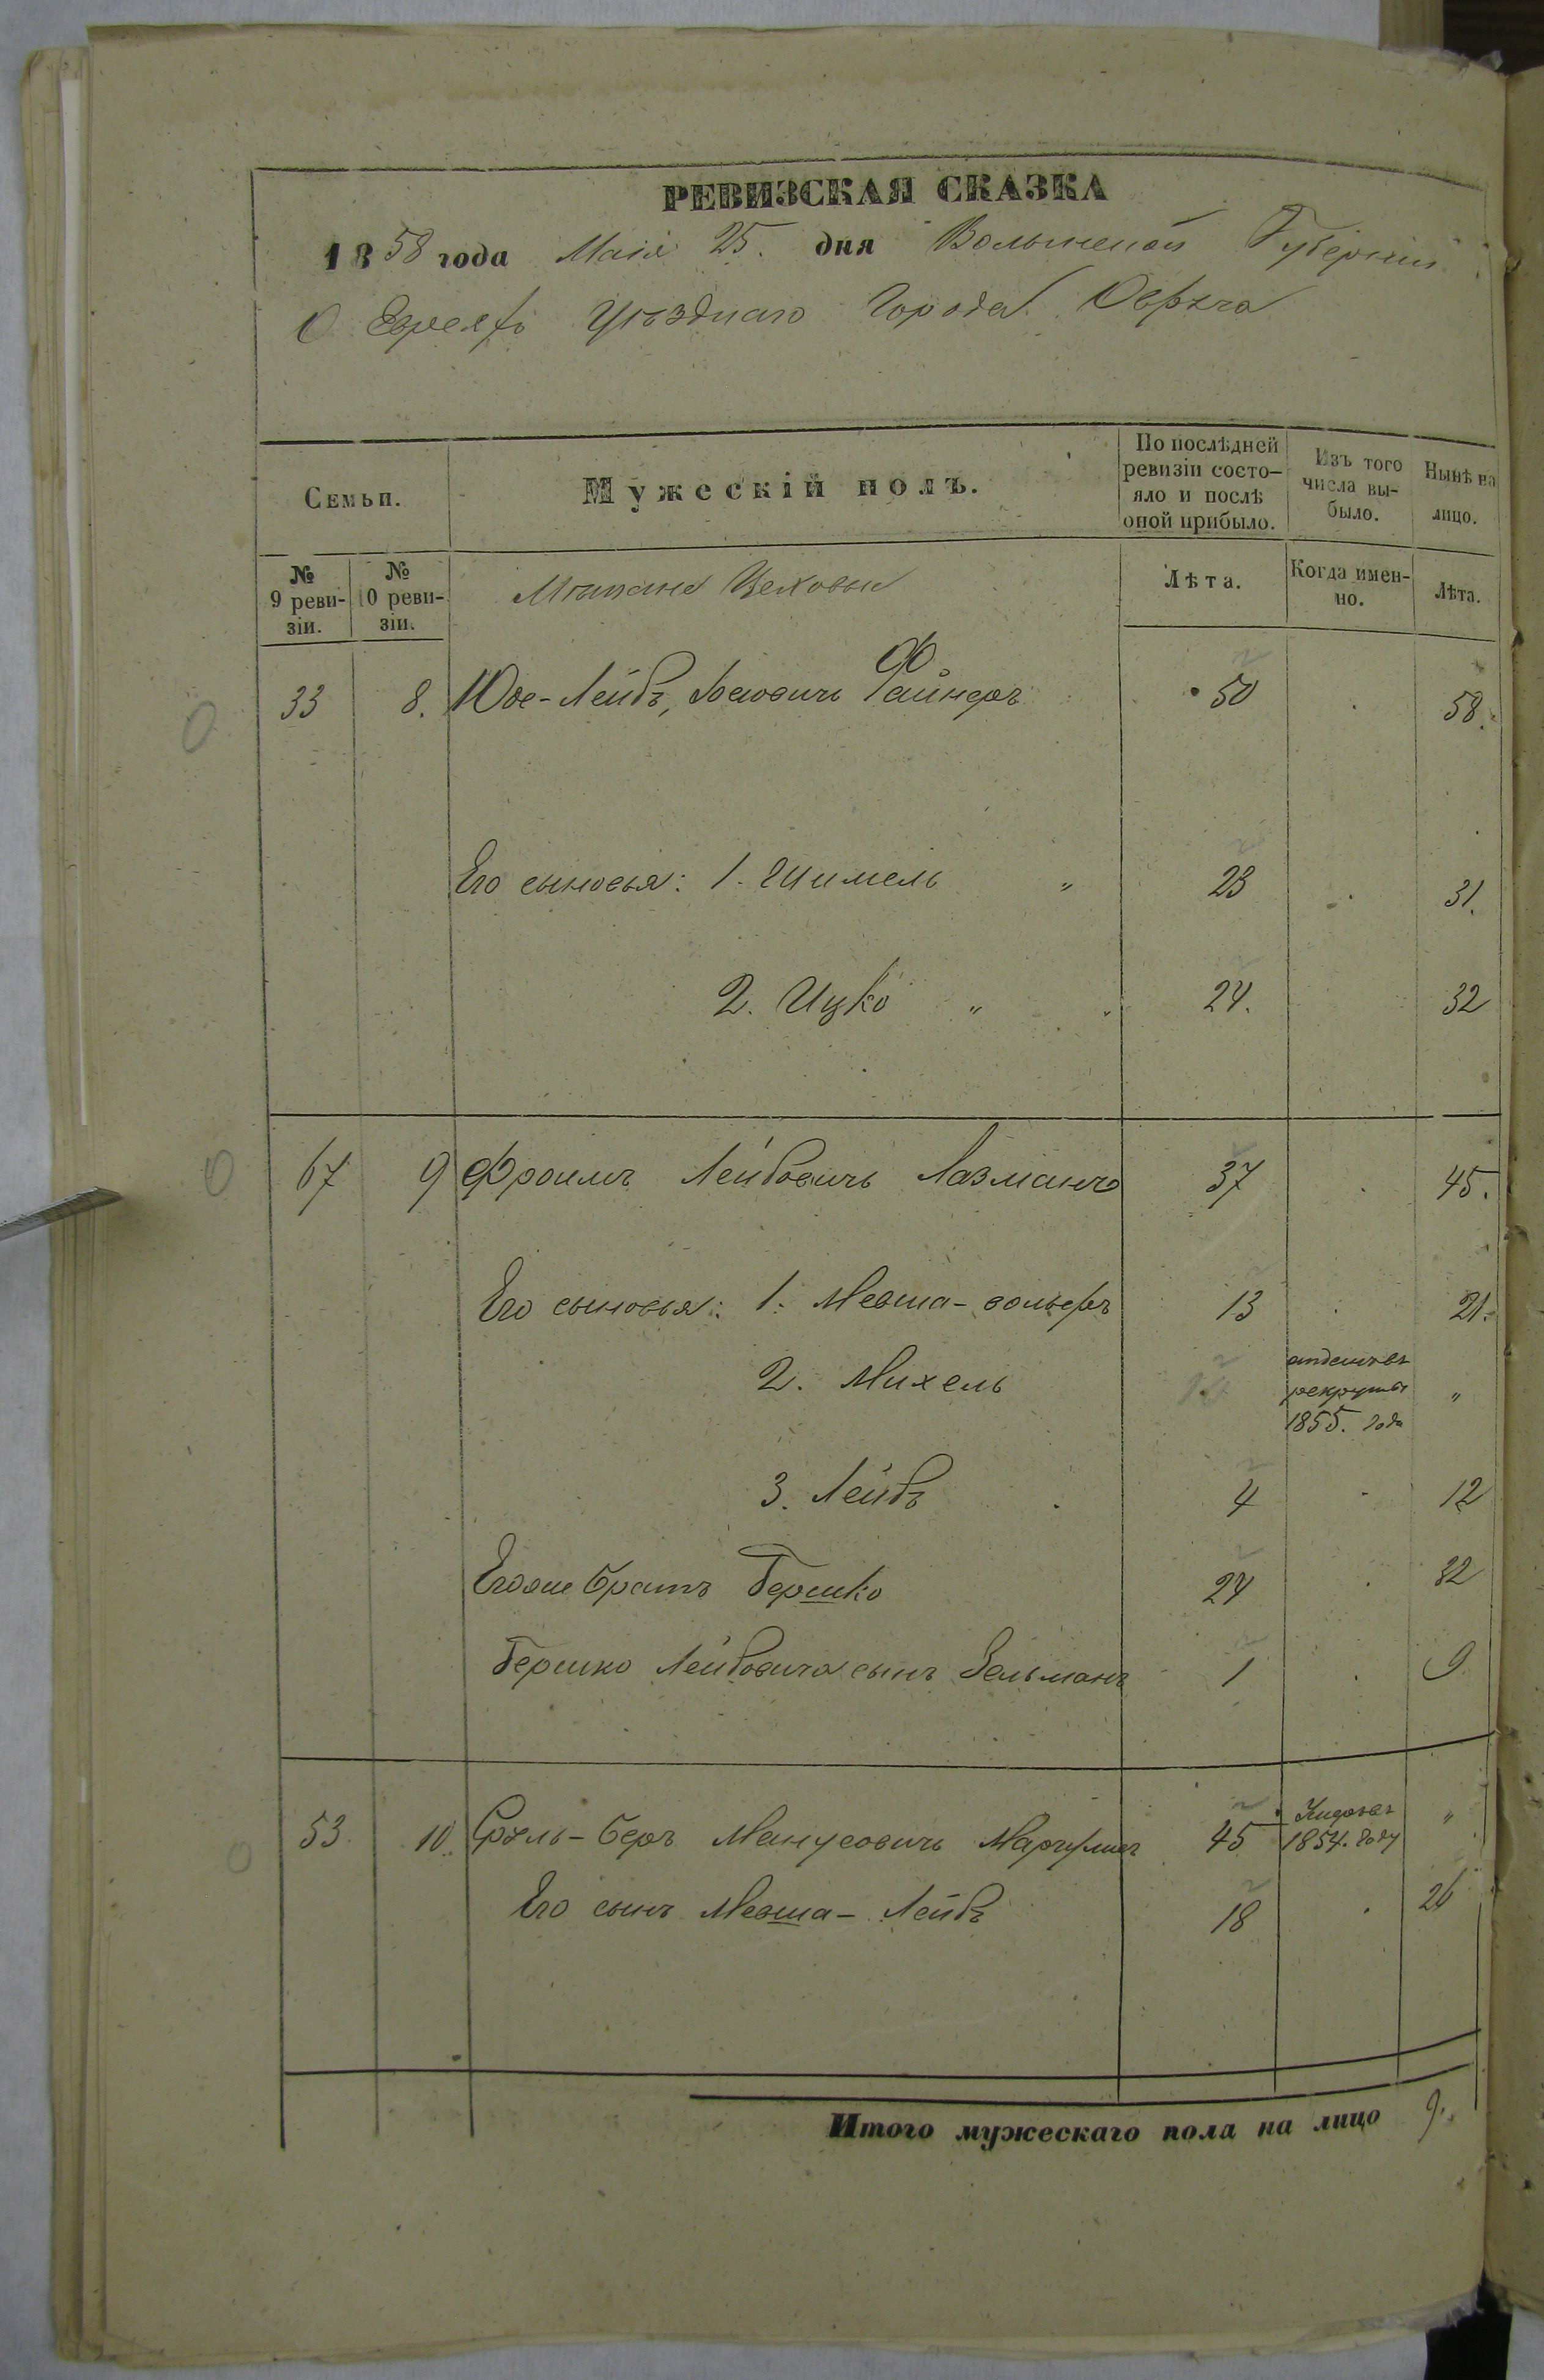 РЕВИЗСКАЯ СКАЗКА
1858 года Маія 25. дня Волынской Губерніи
О Евреяхъ Уѣзднаго Города Овруча
Семьи.
Мужескій полъ.
По послѣдней ревизіи состо-
яло и послѣ
оной прибыло.
Изъ того
числа вы-
было.
Нынѣ на
лицо.
№
9 реви-
зіи.
№
10 реви-
зіи.
Мѣщане Цеховые
Лѣта.
Когда имен-
но.
Лѣта.
33 8. Юос-Лейбъ, Файнеръ 50 58.
Его сыновья: 1. Шимель " 23 31.
2. Ицко " 24. 32
67 9 Фроимъ Лейбовичъ Лазманъ 37 45.
Его сыновья: 1. Мовша-вольфъ 13 21.
2. Михель рекруты 1855. года "
3. Лейбъ 4 12
Егоже братъ Гершко 24 32
Гершко Лейбовича сынъ Зельманъ 1 9
53 10. Сруль-Беръ Манусовичъ Маргулисъ 45 1854. году "
Его сынъ Мовша-Лейбъ 18 26
Итого мужескаго пола на лицо 9.